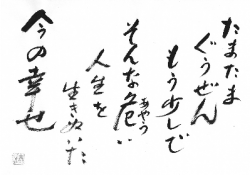 たまたま
ぐうぜん
もう少しで
そんな危い
あやう
人生を
生きぬいた
今の幸せ